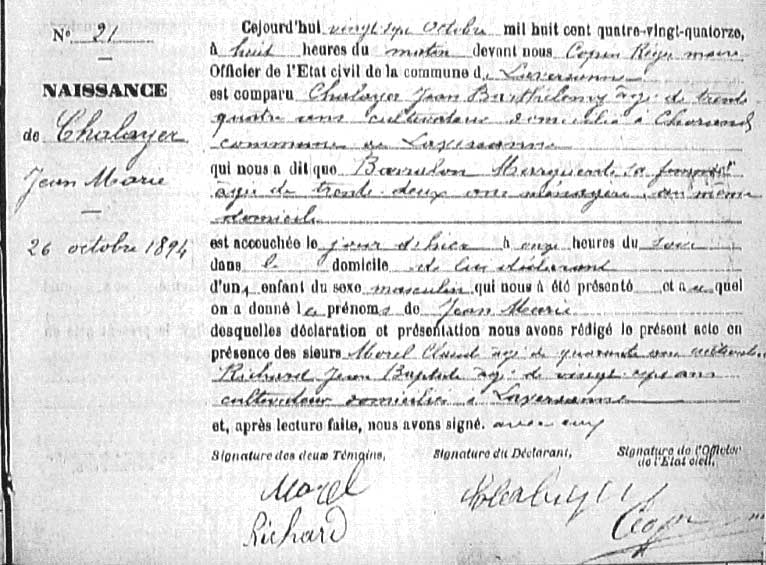 N° 21
NAISSANCE
de Chalayer
Jean Marie
26 octobre 1894
Cejourd'hui vingt sept Octobre mil huit cent quatre-vingt-quatorze,
à huit heures du matin devant nous Copin maire
Officier de l'Etat civil de la commune de
est comparu Chalayer Jean Barthélemy âgé de trente
quatre ans cultivateur domicilié à
commune de
qui nous a dit que Marguerite sa femme
âgée de trente-deux ans ménagère au même
domicile
est accouchée le jour d'hier à onze heures du soir
dans le domicile de lui déclarant
d'un enfant du sexe masculin qui nous a été présenté et auquel
on a donné les prénoms de Jean Marie
desquelles déclaration et présentation nous avons rédigé le présent acte en
présence des sieurs Morel Claude âgé de quarante ans cultivateur
Richard Jean Baptiste âgé de vingt sept ans
cultivateur domiciliés à
et, après lecture faite, nous avons signé. avec eux
Signature des deux Témoins,
Signature du Déclarant,
Signature de l'Officier
de l'Etat civil,
Morel
Chalayer
Richard
Copin